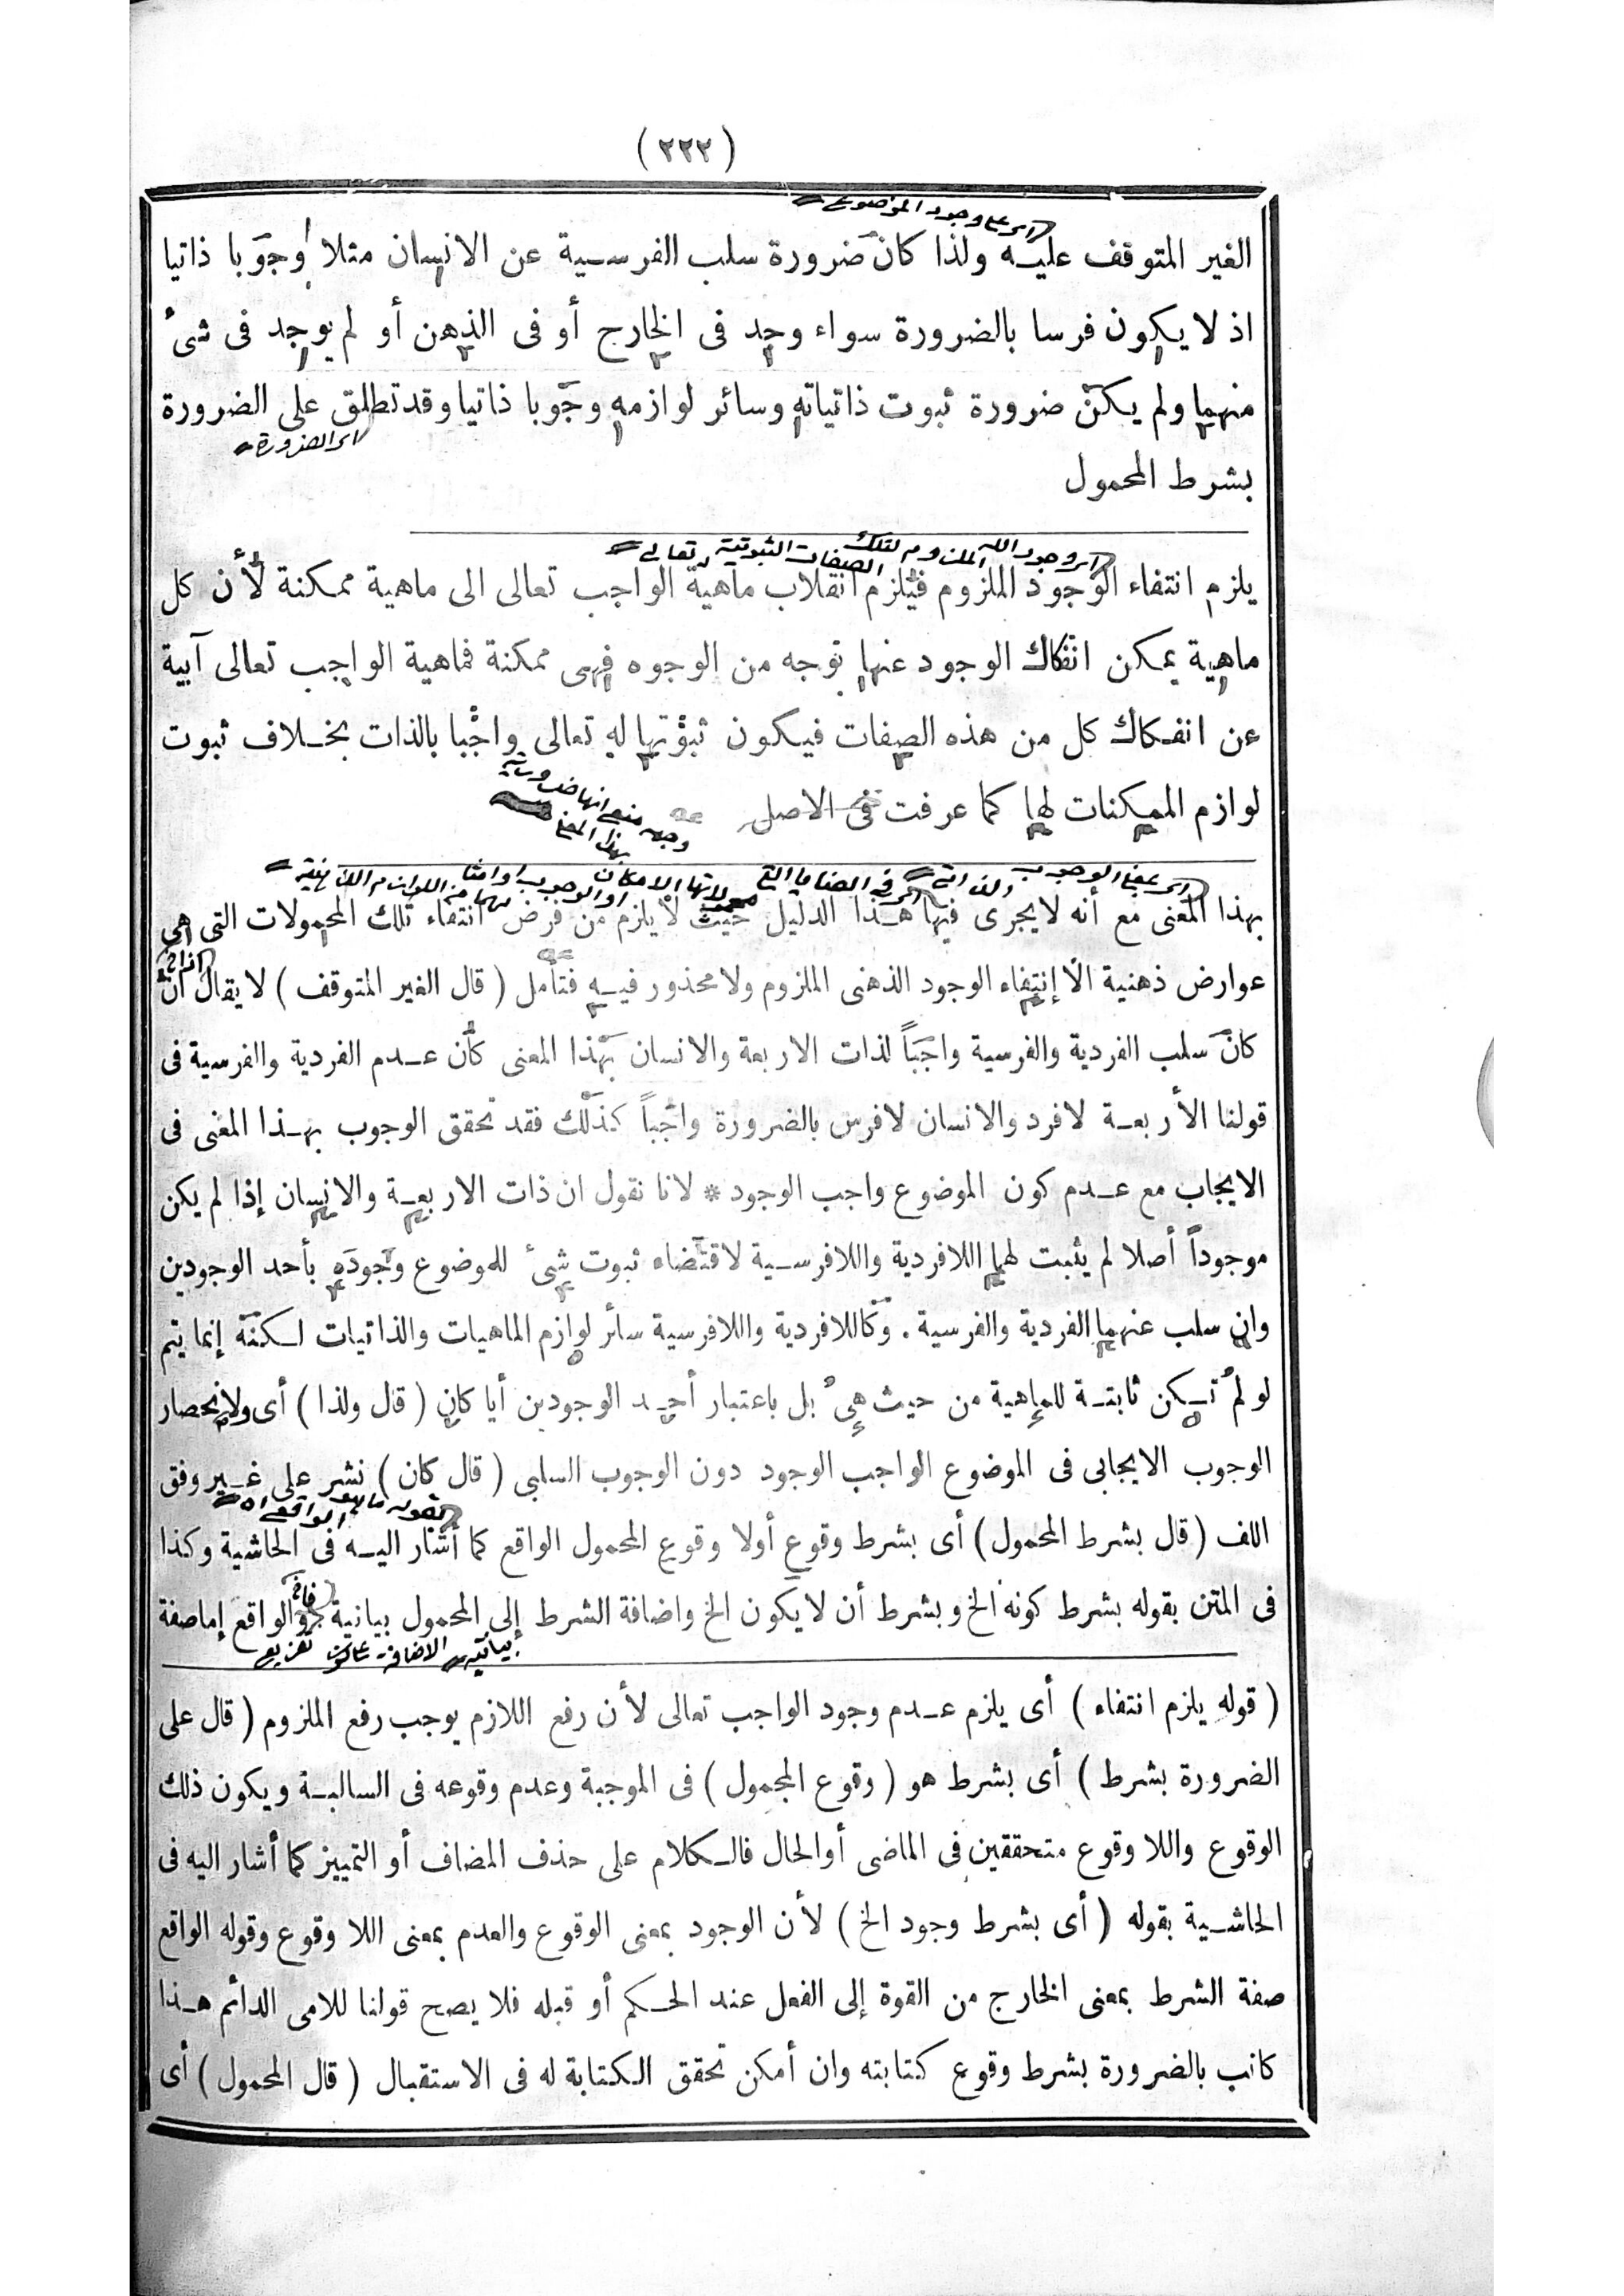 ( ٢٢٢ )
اى على وجود الموضوع
الغير المتوقف عليه ولذا كان ضرورة سلب الفرسية عن الانسان مثلا وجوبا ذاتيا
اذ لا يكون فرسا بالضرورة سواء وجد فى الخارج أو فى الذهن أو لم يوجد فى شئ
منهما ولم يكن ضرورة ثبوت ذاتياته وسائر لوازمه وجوبا ذاتيا وقد تطلق على الضرورة
اى الضرورة
بشرط المحمول
اى وجود الله الملزوم لتلك الصفات الثبوتية تعالى
يلزم انتفاء الوجود الملزوم فيلزم انقلاب ماهية الواجب تعالى الى ماهية ممكنة لأن كل
ماهية يمكن انفكاك الوجود عنها بوجه من الوجوه فهى ممكنة فماهية الواجب تعالى آبية
عن انفكاك كل من هذه الصفات فيكون ثبوتها له تعالى واجبا بالذات بخلاف ثبوت
لوازم الممكنات لها كما عرفت فى الاصل
اى بمعنى الوجوب الذاتى
بهذا المعنى مع أنه لا يجرى فيها هذا الدليل حيث لا يلزم من فرض انتفاء تلك المحمولات التى هى
عوارض ذهنية الا إنتفاء الوجود الذهنى الملزوم ولا محذور فيه فتأمل ( قال الغير المتوقف ) لا يقال ان
كان سلب الفردية والفرسية واجباً لذات الاربعة والانسان بهذا المعنى كان عدم الفردية والفرسية فى
قولنا الأربعة لا فرد والانسان لا فرس بالضرورة واجباً كذلك فقد تحقق الوجوب بهذا المعنى فى
الايجاب مع عدم كون الموضوع واجب الوجود * لانا نقول ان ذات الاربعة والانسان إذا لم يكن
موجوداً أصلا لم يثبت لهما اللافردية واللافرسية لاقتضاء ثبوت شئ للموضوع وجوده بأحد الوجودين
وان سلب عنهما الفردية والفرسية . وكاللافردية واللافرسية سائر لوازم الماهيات والذاتيات لكنه إنما يتم
لو لم تكن ثابتة للماهية من حيث هى بل باعتبار أحد الوجودين أيا كان ( قال ولذا ) أى ولانحصار
الوجوب الايجابى فى الموضوع الواجب الوجود دون الوجوب السلبى ( قال كان ) نشر على غير وفق
اللف ( قال بشرط المحمول ) أى بشرط وقوع أولا وقوع المحمول الواقع كما أشار اليه فى الحاشية وكذا
فى المتن بقوله بشرط كونه الخ وبشرط أن لا يكون الخ واضافة الشرط إلى المحمول بيانية والواقع إما صفة
تفريع على كون الاضافة بيانية
( قوله يلزم انتفاء ) أى يلزم عدم وجود الواجب تعالى لأن رفع اللازم يوجب رفع الملزوم ( قال على
الضرورة بشرط ) أى بشرط هو ( وقوع المحمول ) فى الموجبة وعدم وقوعه فى السالبة ويكون ذلك
الوقوع واللا وقوع متحققين فى الماضى أو الحال فالكلام على حذف المضاف أو التمييز كما أشار اليه فى
الحاشية بقوله ( أى بشرط وجود الخ ) لأن الوجود بمعنى الوقوع والعدم بمعنى اللا وقوع وقوله الواقع
صفة الشرط بمعنى الخارج من القوة إلى الفعل عند الحكم أو قبله فلا يصح قولنا للامى الدائم هذا
كاتب بالضرورة بشرط وقوع كتابته وان أمكن تحقق الكتابة له فى الاستقبال ( قال المحمول ) أى